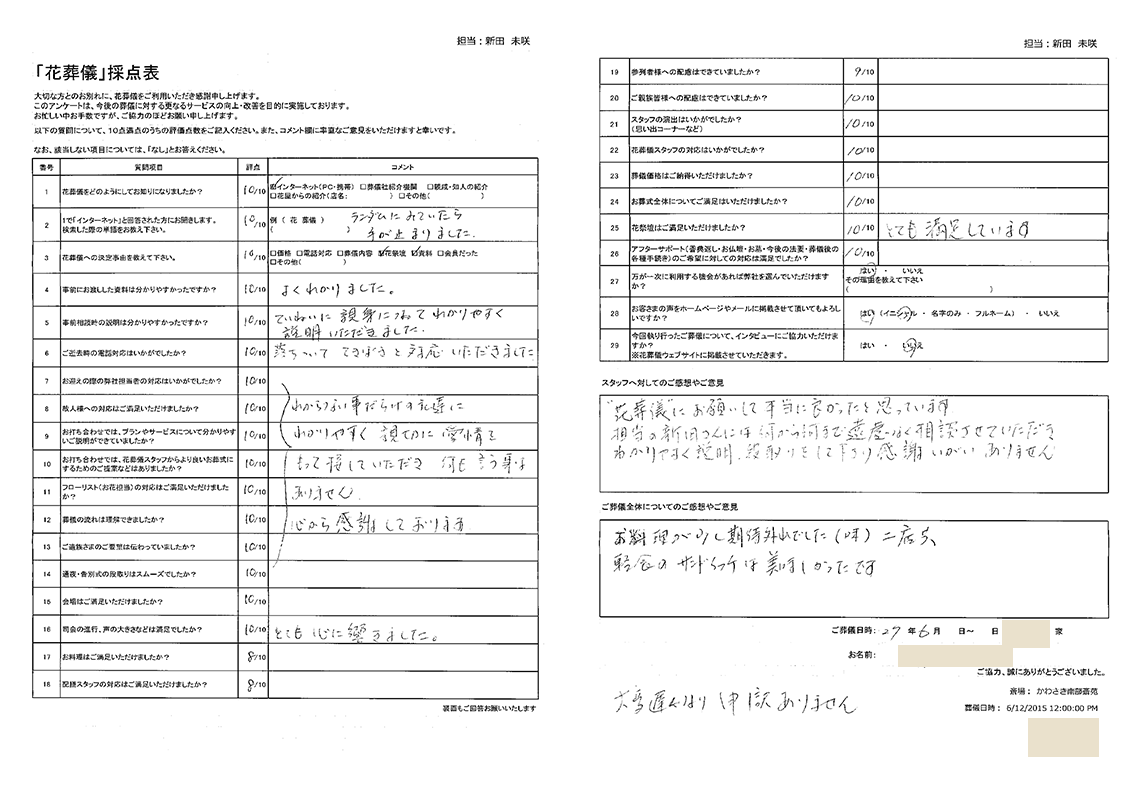 担当：新田 未咲
「花葬儀」採点表
大切な方とのお別れに、花葬儀をご利用いただき感謝申し上げます。
このアンケートは、今後の葬儀に対する更なるサービスの向上・改善を目的に実施しております。
お忙しい中お手数ですが、ご協力のほどお願い申し上げます。
以下の質問について、10点満点のうちの評価点数をご記入ください。また、コメント欄に率直なご意見をいただけますと幸いです。
なお、該当しない項目については、「なし」とお答えください。
番号 質問項目 評点 コメント
1 花葬儀をどのようにしてお知りになりましたか？ 10/10 ☑インターネット（PC・携帯） □葬儀社紹介機関 □親戚・知人の紹介
□花屋からの紹介（店名： ） □その他（ ）
2 1で「インターネット」と回答された方にお聞きします。
検索した際の単語をお教え下さい。 10/10 例（ 花 葬儀 ）
（ ）
ランダムにみていたら
手が止まりました。
3 花葬儀への決定事由を教えて下さい。 10/10 □価格 □電話対応 □葬儀内容 ☑花祭壇 ☑資料 □会員だった
□その他（ ）
4 事前にお渡しした資料は分かりやすかったですか？ 10/10 よくわかりました。
5 事前相談時の説明は分かりやすかったですか？ 10/10 ていねいに 親身になって わかりやすく
説明いただきました。
6 ご逝去時の電話対応はいかがでしたか？ 10/10 落ちついて てきぱきと 対応いただきました
7 お迎えの際の弊社担当者の対応はいかがでしたか？ 10/10
8 故人様への対応はご満足いただけましたか？ 10/10 わからない事だらけの私達に
9 お打ち合わせでは、プランやサービスについて分かりやすいご説明ができていましたか？ 10/10 わかりやすく 親切に 愛情を
10 お打ち合わせでは、花葬儀スタッフからより良いお葬式にするためのご提案などはありましたか？ 10/10 もって接していただき 何も言う事は
11 フローリスト（お花担当）の対応はご満足いただけましたか？ 10/10 ありません。
12 葬儀の流れは理解できましたか？ 10/10 心から感謝しております
13 ご遺族さまのご要望は伝わっていましたか？ 10/10
14 通夜・告別式の段取りはスムーズでしたか？ 10/10
15 会場はご満足いただけましたか？ 10/10
16 司会の進行、声の大きさなどは満足でしたか？ 10/10 とても心に響きました。
17 お料理はご満足いただけましたか？ 8/10
18 配膳スタッフの対応はご満足いただけましたか？ 8/10
裏面もご回答お願いいたします
担当：新田 未咲
19 参列者様への配慮はできていましたか？ 9/10
20 ご親族皆様への配慮はできていましたか？ 10/10
21 スタッフの演出はいかがでしたか？
（思い出コーナーなど） 10/10
22 花葬儀スタッフの対応はいかがでしたか？ 10/10
23 葬儀価格はご納得いただけましたか？ 10/10
24 お葬式全体についてご満足はいただけましたか？ 10/10
25 花祭壇はご満足いただけましたか？ 10/10 とても満足しています
26 アフターサポート（香典返し・お仏壇・お墓・今後の法要・葬儀後の各種手続き）のご希望に対しての対応は満足でしたか？ 10/10
27 万が一次に利用する機会があれば弊社を選んでいただけますか？ はい ・ いいえ
その理由を教えて下さい
（ ）
28 お客さまの声をホームページやメールに掲載させて頂いてもよろしいですか？ はい （イニシャル ・ 名字のみ ・ フルネーム） ・ いいえ
29 今回執り行ったご葬儀について、インタビューにご協力いただけますか？
※花葬儀ウェブサイトに掲載させていただきます。 はい ・ いいえ
スタッフへ対してのご感想やご意見
"花葬儀"にお願いして本当に良かったと思っています
担当の新田さんには何から何まで遠慮なく相談させていただき
わかりやすく説明、段取りをして下さり感謝いがいありません
ご葬儀全体についてのご感想やご意見
お料理が少し期待外れでした（味）
軽食のサンドイッチは美味しかったです
ご葬儀日時： 27 年 6 月 日～ 日 家
お名前：
ご協力、誠にありがとうございました。
大変遅くなり 申訳ありません
斎場： かわさき南部斎苑
葬儀日時： 6/12/2015 12:00:00 PM